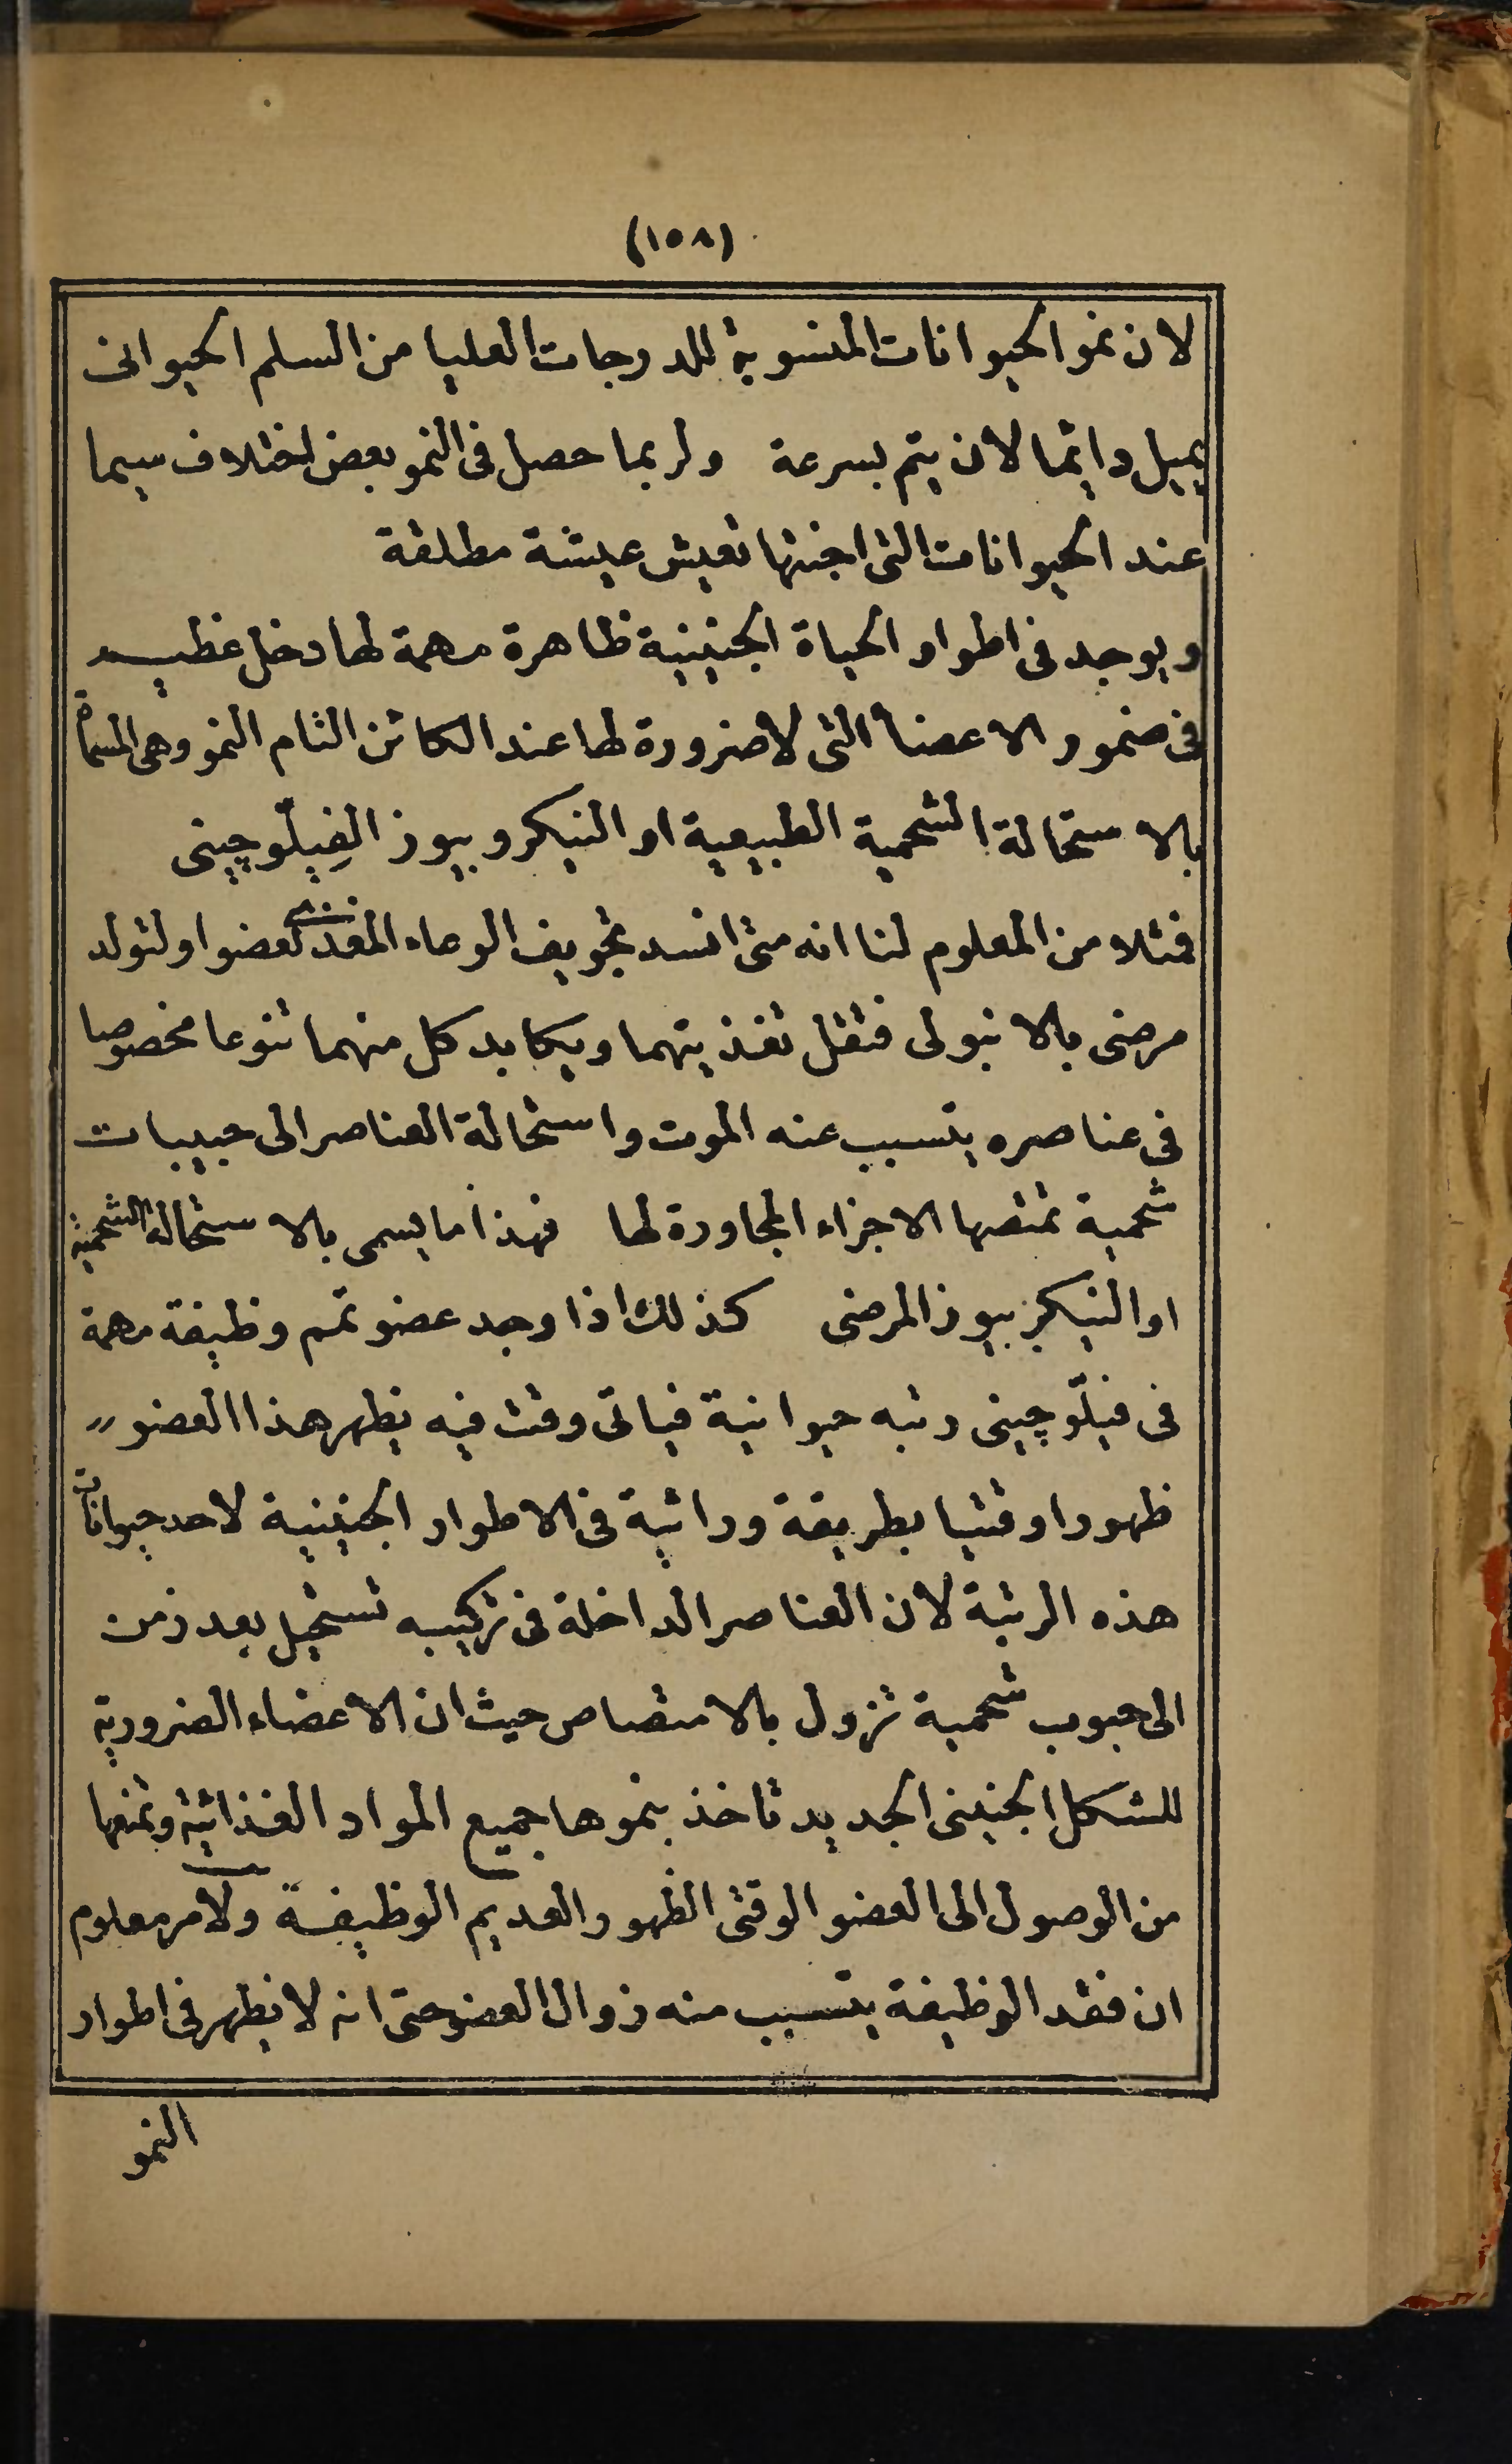 (١٥٨)
لان نمو الحيوانات المنسوبة للدرجات العليا من السلم الحيوانى
يميل دائما لان يتم بسرعة ولربما حصل فى النمو بعض اختلاف سيما
عند الحيوانات التى اجنتها تعيش عيشة مطلقة
ويوجد فى اطوار الحياة الجنينية ظاهرة مهمة لها دخل عظيم
فى ضمور الاعضاء التى لا ضرورة لها عند الكائن التام النمو وهى المسماة
بالاستحالة الشحمية الطبيعية او النيكروبيوز الفِيلّوچينى
فمثلا من المعلوم لنا انه متى انسد تجويف الوعاء المغذى لعضو او لتولد
مرضى بالانبولى فتقل تغذيتهما ويكابد كل منهما تنوعا مخصوصا
فى عناصره يتسبب عنه الموت واستحالة العناصر الى حبيبات
شحمية تمتصها الاجزاء المجاورة لها فهذا ما يسمى بالاستحالة الشحمية
او النيكربيوز المرضى كذلك اذا وجد عضو تمم وظيفة مهمة
فى فيلّوچينى رتبه حيوانية فياتى وقت فيه يظهر هذا العضو
ظهورا وقتيا بطريقة وراثية فى الاطوار الجنينية لاحد حيوانات
هذه الرتبة لان العناصر الداخلة فى تركيبه تستحيل بعد زمن
الى حبوب شحمية تزول بالامتصاص حيث ان الاعضاء الضرورية
للشكل الجنينى الجديد تاخذ بنموها جميع المواد الغذائية وتمنعها
من الوصول الى العضو الوقتى الظهور والعديم الوظيفة ولامر معلوم
ان فقد الوظيفة يتسبب منه زوال العضو حتى انه لا يظهر فى اطوار
النمو